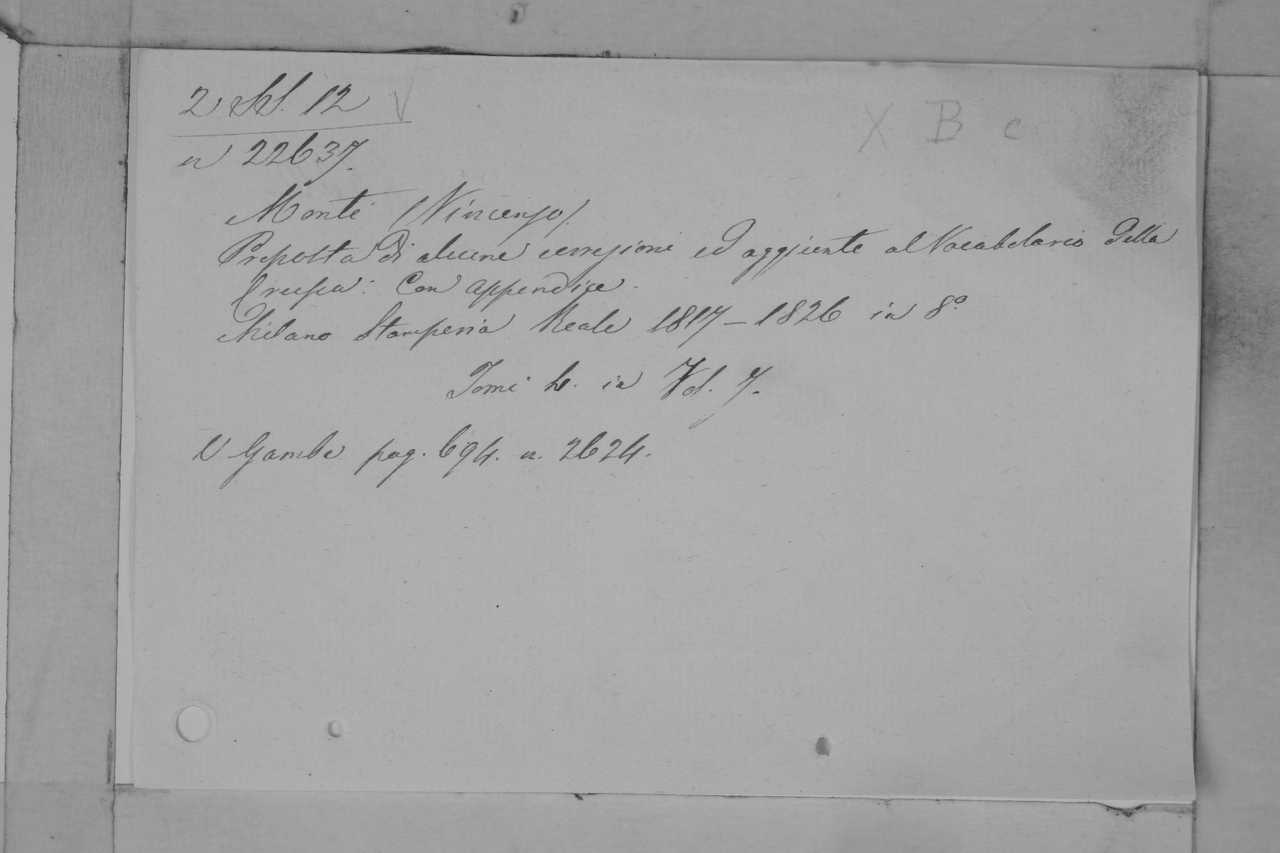 2 12 V
X B c
n 22637.
Monti (Vincenzo)
Proposta di alcune correzioni ed aggiunte al Vocabolario della
Crusca: Con appendice.
Milano Stamperia Reale 1817-1826 in 8º
Tomi 4. in Vol. 7.
V Gamba pag. 694. n. 2624.